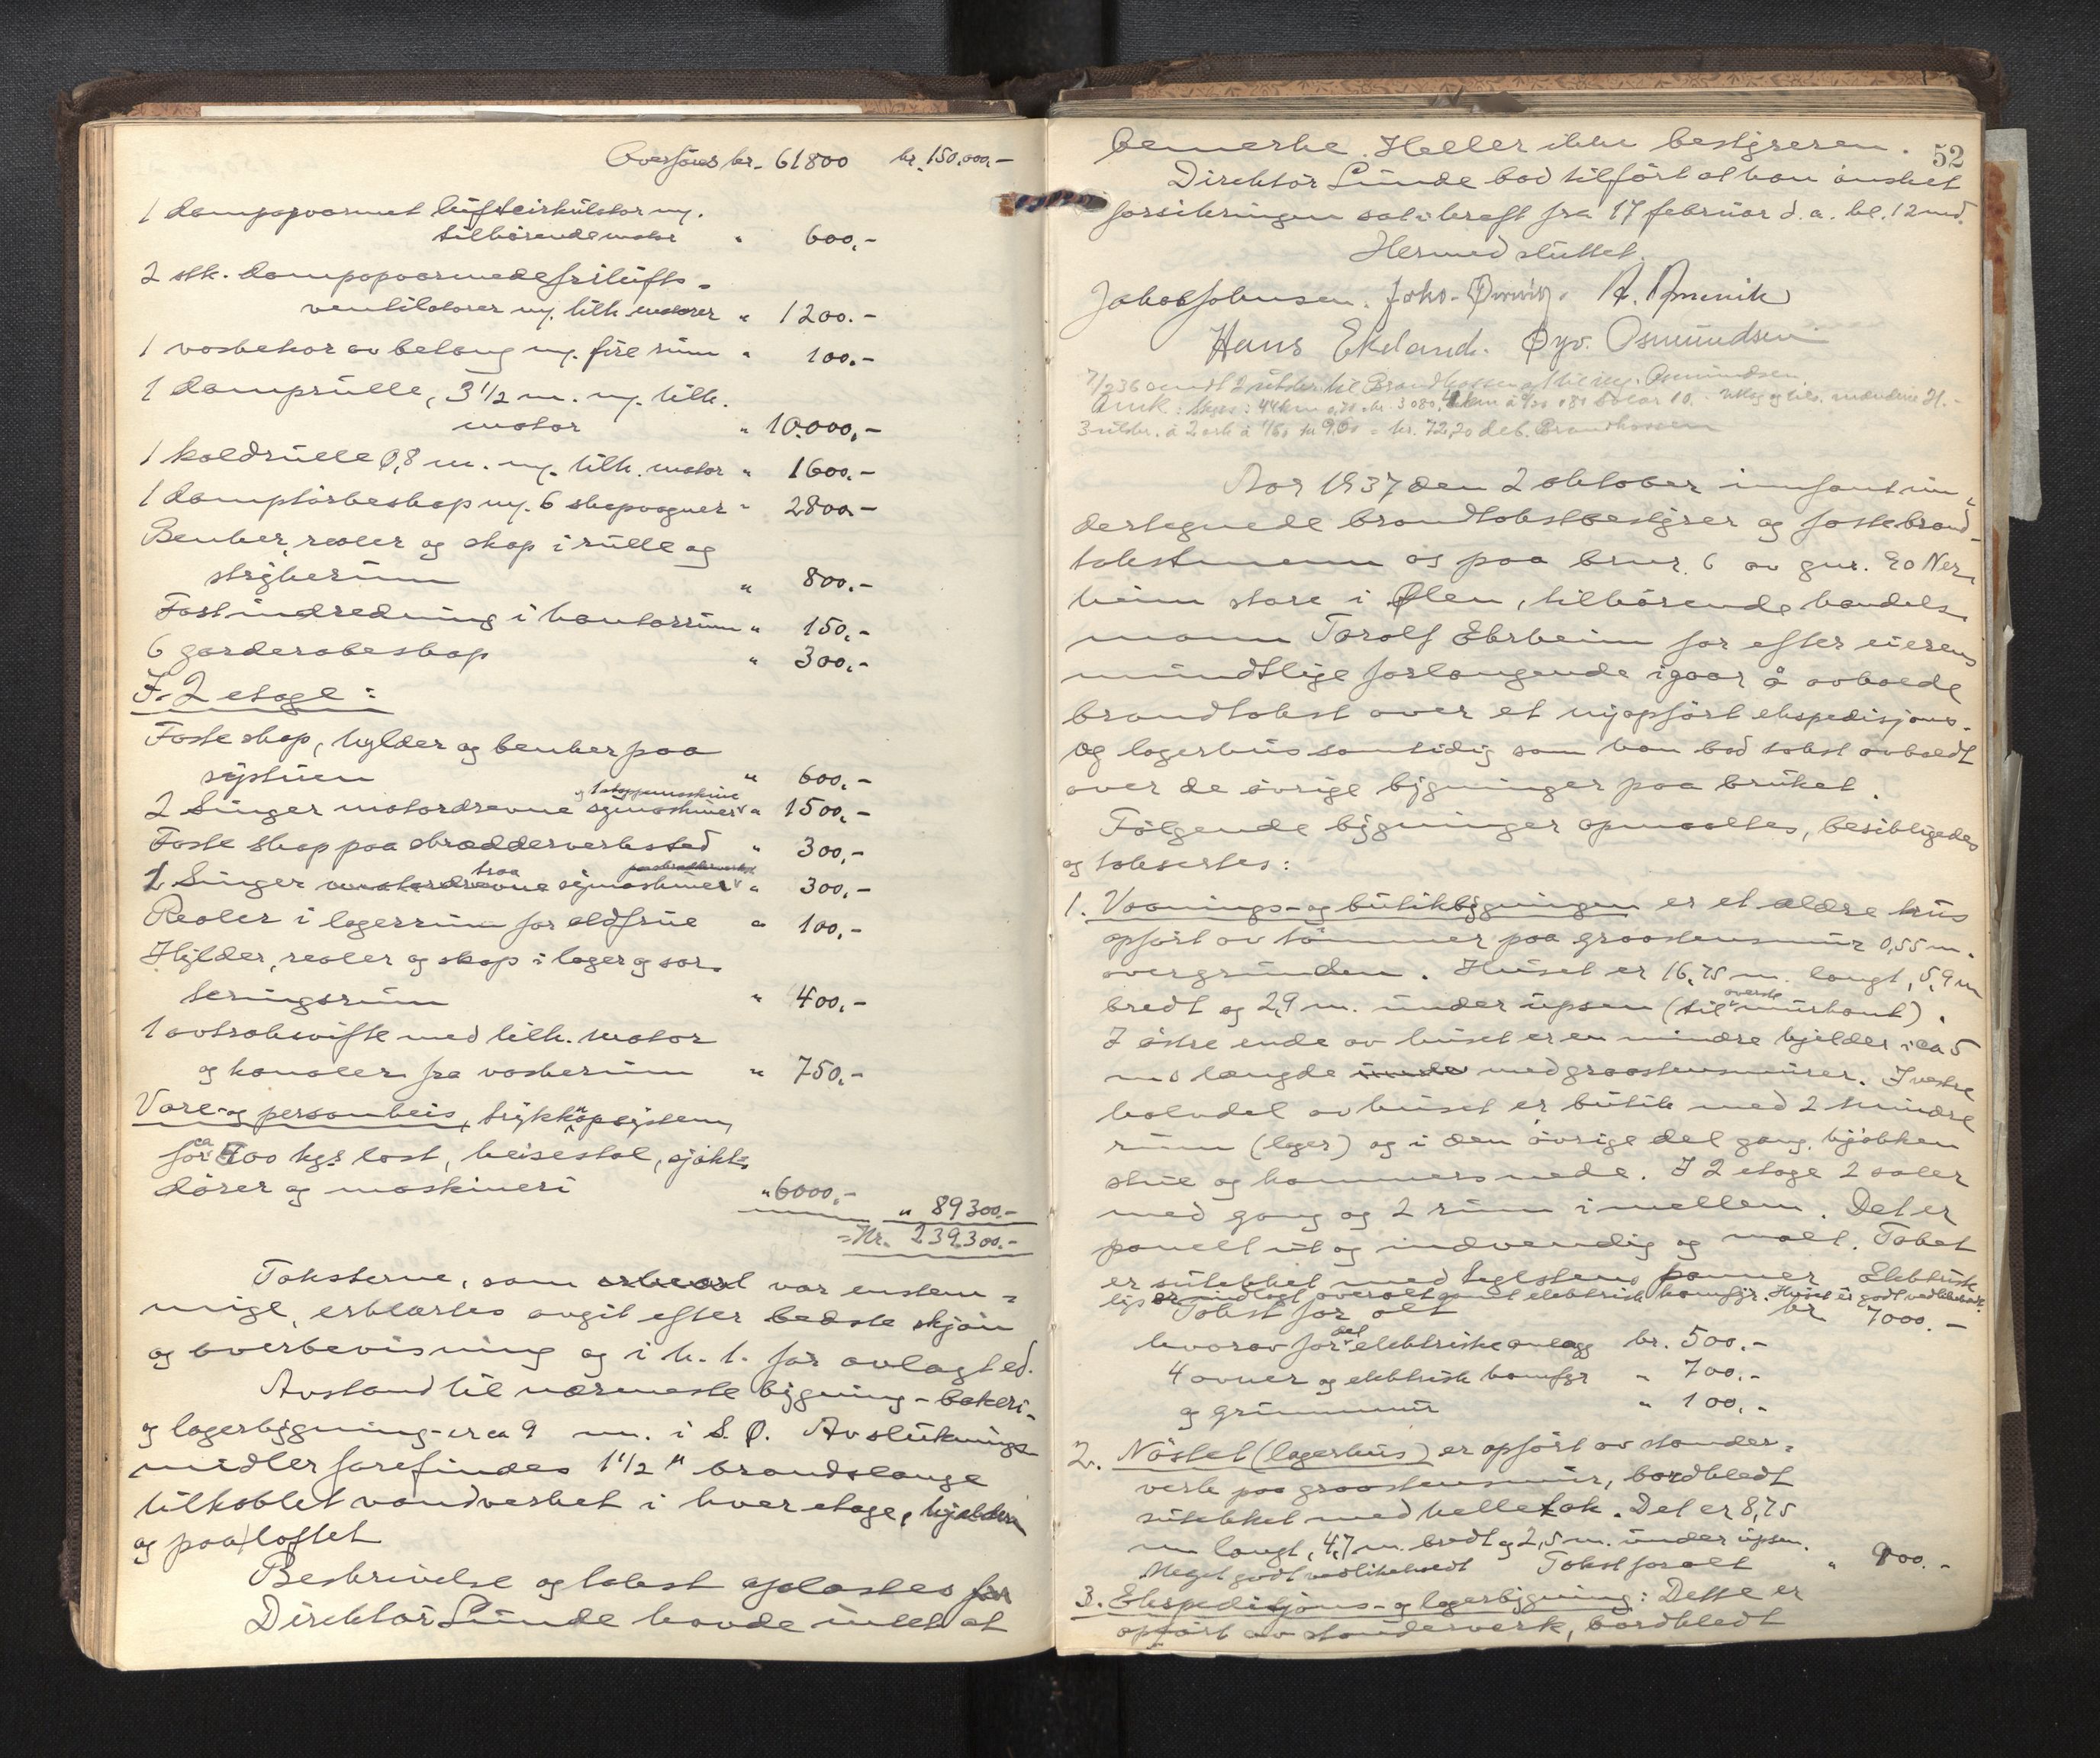 Overføres kr. 61800 kr. 150.000.-
1 dampopvarmet luftcirkulator m.
tilhørende motor " 600.-
2 stk. dampopvarmede frilufts-
ventilatorer m. tilh. motorer " 1200.-
1 vaskekar av betong m. fire rum " 100.-
1 damprulle, 3 1/2 m. m. tilh.
motor " 10.000.-
1 koldrulle 0,8 m. m. tilh. motor " 1600.-
1 damptørkeskap m. 6 skapvogner " 2800.-
Benker, reoler og skap i rulle og
strykerum " 800.-
Fast indredning i kontorrum " 150.-
6 garderobeskap " 300.-
I. 2 etage:
Faste skap, hylder og benker paa
systuen " 600.-
og 1 stoppemaskine
2 Singer motordrevne symaskiner " 1500.-
Faste skap paa skrædderverksted " 300.-
traa paa skrædderverkst
1 Singer symaskiner " 300.-
Reoler i lagerrum for oldfrue " 100.-
Hylder, reoler og skap i lager og sor-
teringsrum " 400.-
1 avtraksvifte med tilh. motor
og kanaler fra vaskerum " 750.-
Vare- og personheis, trykknapsystem,
for ca 700 kgs last, heisestol, sjakt-
dører og maskineri " 6000.-
" 89300.-
= Kr. 239300.-
Taksterne, som var enstem-
mige, erklærtes avgit efter bedste skjøn
og overbevisning og i h. t. før avlagt ed.
Avstand til nærmeste bygning - bakeri-
og lagerbygning - er ca 9 m. i S. Ø. Avsluknings-
midler forefindes 1 1/2" brandslange
tilkoblet vandverket i hver etage, kjelder
og paa loftet
Beskrivelse og takst oplæstes
Direktør Sunde havde intet at
52
bemerke. Heller ikke bestyreren.
Direktør Sunde bad tilført at han ønsket
forsikringen sat i kraft fra 17 februar d. a. kl. 12 md.
Hermed sluttet.
Jakob Johnsen. Joh.
Hans Ekeland. Øyv. Osmundsen
7/2 36 sendt 2 utskr. til Brandkassen og 1 til ing. Osmundsen.
Aar 1937 den 2 oktober innfant un-
dertegnede brandtakstbestyrer og faste brand-
takstmenn os paa brnr. 6 av gnr. 90 Ner-
heim store i Ølen, tilhørende handels-
mann Torolf Ebrheim for efter eierens
mundtlige forlangende igaar å avholde
brandtakst over et nyopført ekspedisjons-
og lagerhus samtidig som han bad takst avholdt
over de øvrige bygninger paa bruket.
Følgende bygninger opmaaltes, besiktigedes
og takseres:
1. Vaanings- og butikbygningen er et ældre hus
opført av tømmer paa graastensmur 0,55 m.
over grunden. Huset er 16,75 m. langt, 5,9 m
bredt og 2,9 m. under upsen (til øverste murkant).
I østre ende av huset er en mindre kjelder i ca 5
m.s længde med graastensmurer. I vestre
halvdel av huset er butik med 2 mindre
rum (lager) og i den øvrige del gang, kjøkken
stue og kammers nede. I 2 etage 2 saler
med gang og 2 rum i mellem. Det er
panelt ut og indvendig og malt. Taket
er sutekket med teglstens panner. Elektrisk
lys er indlagt overalt samt elektrisk komfyr. Huset er godt vedlikeholdt.
Takst for alt kr 7000.-
hvorav for det elektriske anlegg kr. 500.-
4 ovner og elektrisk komfyr " 700.-
og grunnmur " 100.-
2. Nøstet (lagerhus) er opført av stender-
verk paa graastensmur, bordkledt
sutekket med helletak. Det er 8,75
m langt, 4,7 m. bredt og 2,5 m. under upsen.
Meget godt vedlikeholdt Takst for alt " 900.-
3. Ekspedisjons- og lagerbygning: Dette er
opført av stenderverk, bordkledt